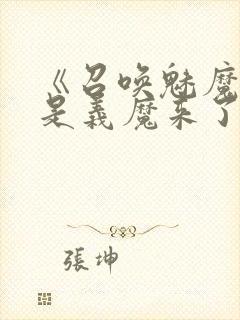 《召唤魅魔
是義魔来了
張坤